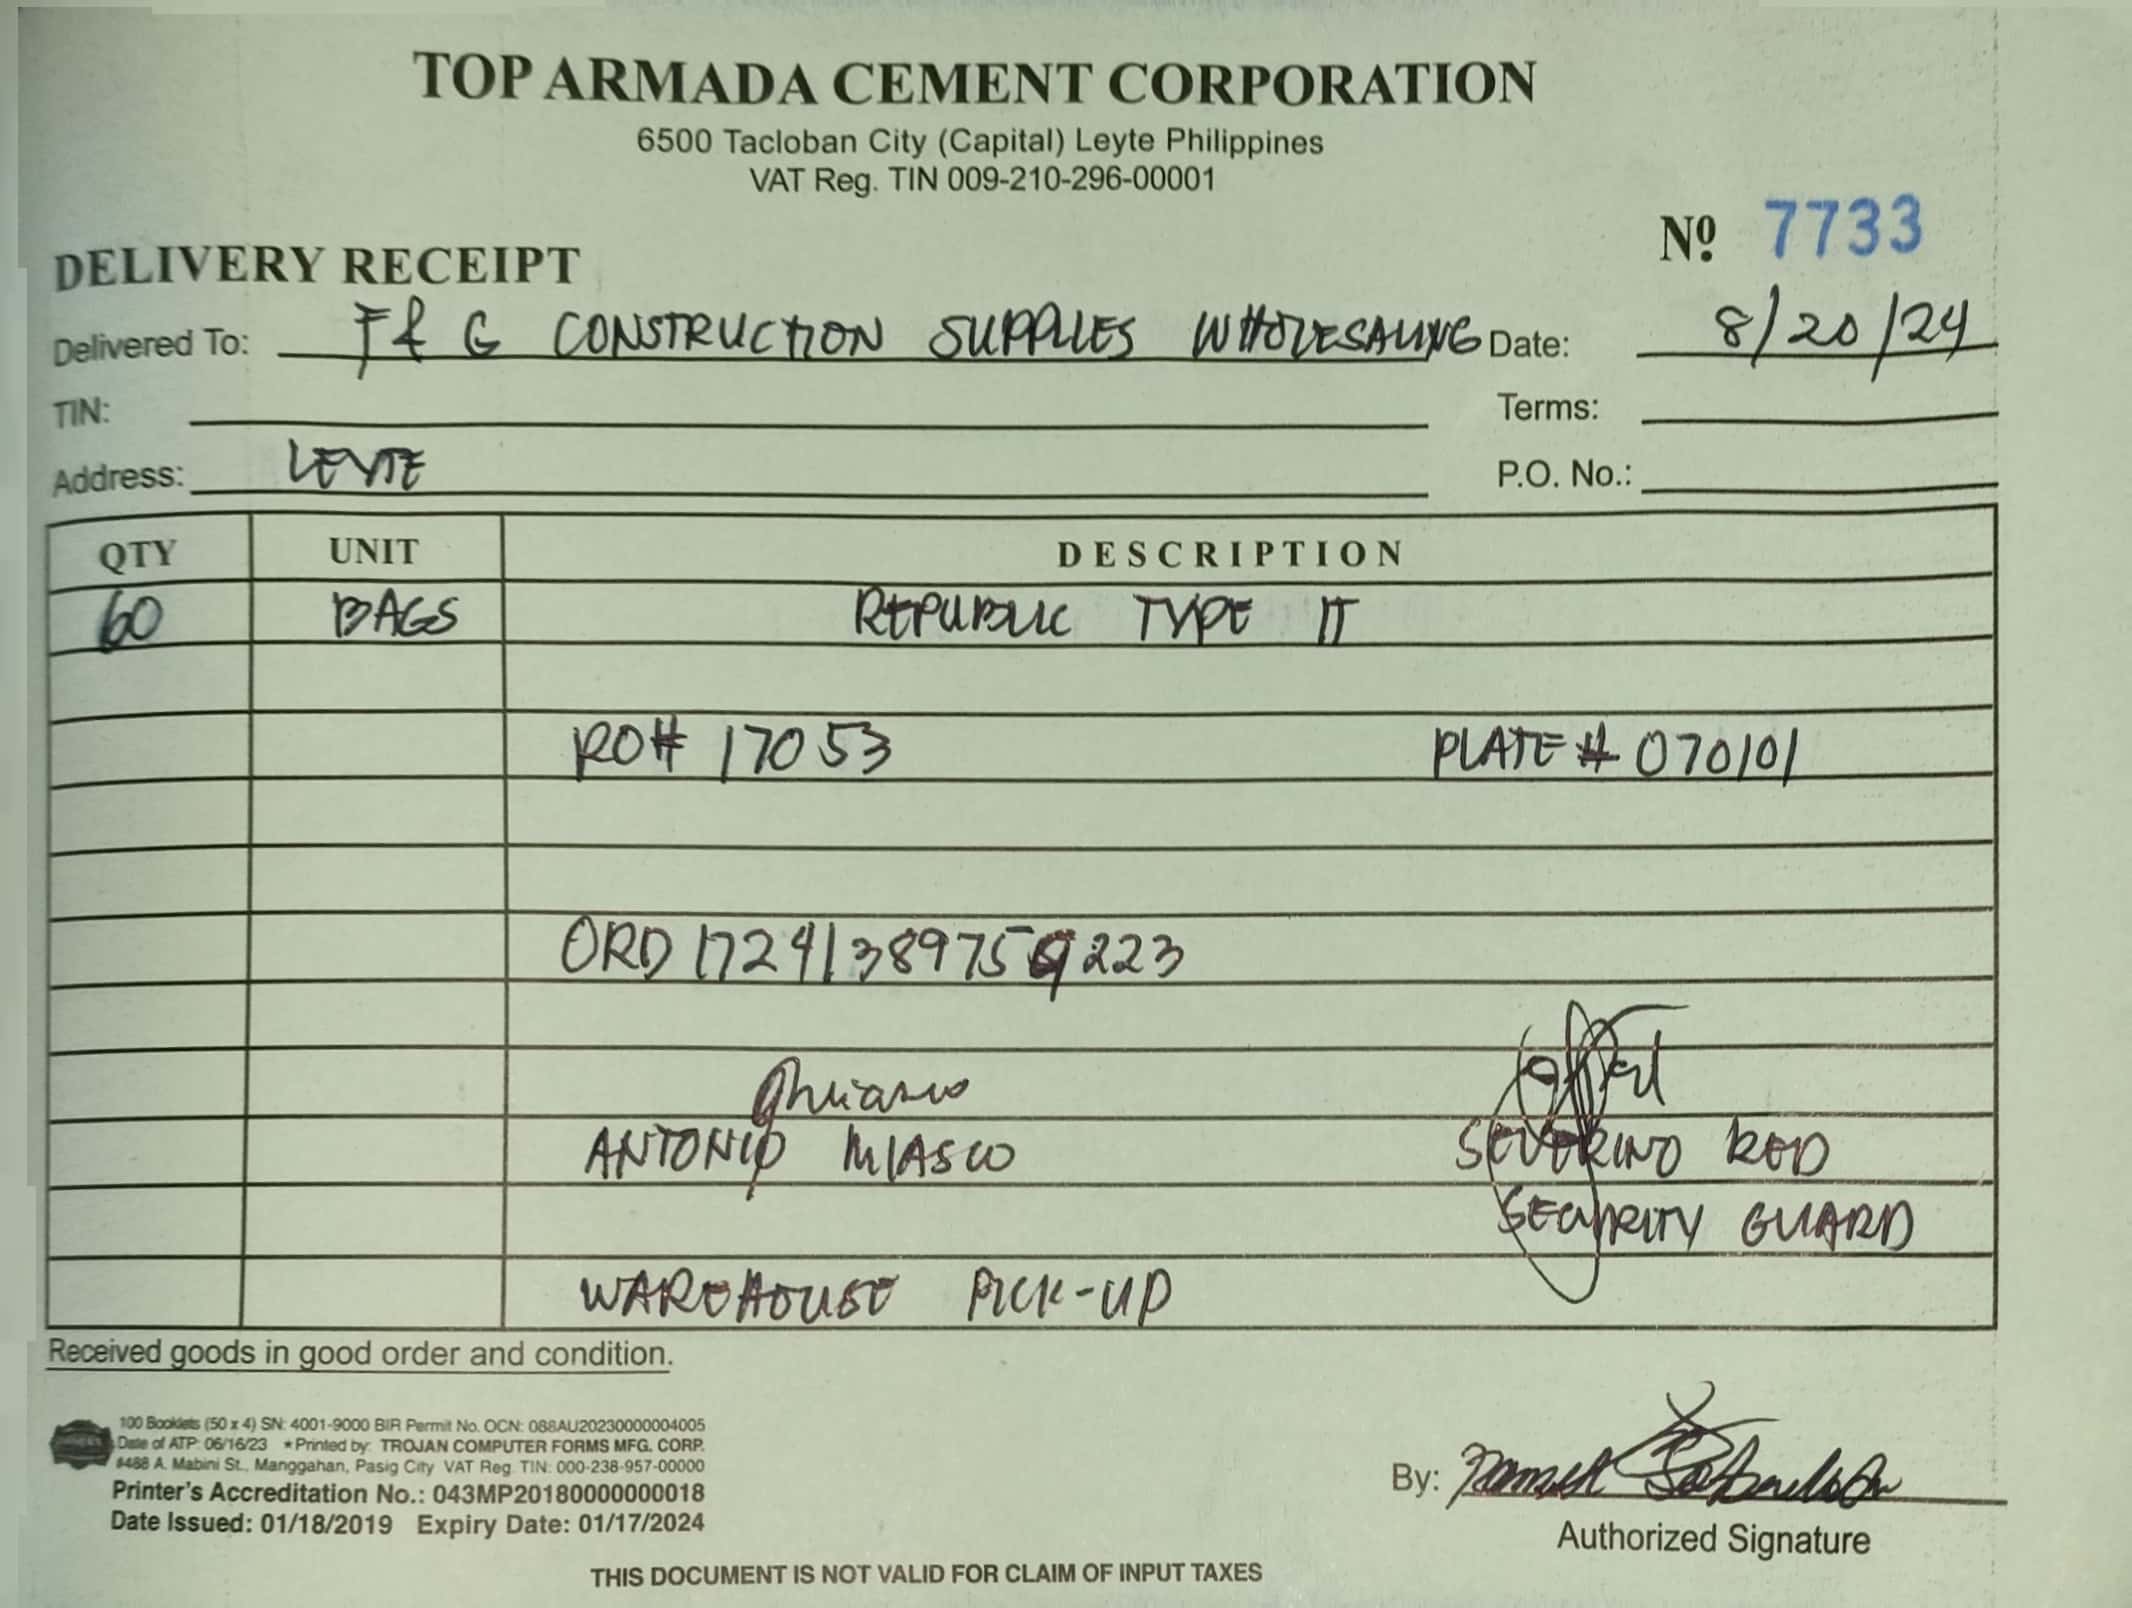 TOP ARMADA CEMENT CORPORATION
6500 Tacloban City (Capital) Leyte Philippines
VAT Reg. TIN 009-210-296-00001
Nº 7733
DELIVERY RECEIPT
Delivered To: F & G CONSTRUCTION SUPPLIES WHOLESALING Date: 8/20/24
TIN: Terms:
Address: LEYTE P.O. No.:
QTY UNIT DESCRIPTION
60 BAGS REPUBLIC TYPE IT
RO# 17053 PLATE # 070101
ORD 1724138975 9223
ANTONIO MIASCO SEVERINO RED
SECURITY GUARD
WAREHOUSE PICK-UP
Received goods in good order and condition.
100 Booklets (50 x 4) SN: 4001-9000 BIR Permit No. OCN: 088AU20230000004005
Date of ATP: 06/16/23 *Printed by: TROJAN COMPUTER FORMS MFG. CORP.
#488 A. Mabini St., Manggahan, Pasig City VAT Reg. TIN: 000-238-957-00000
Printer's Accreditation No.: 043MP20180000000018
Date Issued: 01/18/2019 Expiry Date: 01/17/2024
By:
Authorized Signature
THIS DOCUMENT IS NOT VALID FOR CLAIM OF INPUT TAXES